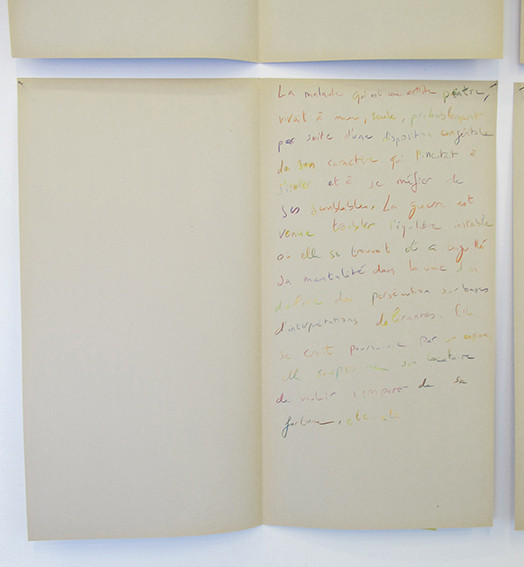 La malade qui est une artiste peintre,
vivait à Paris, seule, probablement
par suite d'une disposition congénitale
de son caractère qui l'incitait à
s'isoler et à se méfier de
ses semblables. La guerre est
venue troubler l'équilibre instable
où elle se trouvait et a aiguillé
sa mentalité dans la voie d'un
délire de persécution sur bases
d'interprétations délirantes. Elle
se croit poursuivie par un
elle soupçonne son locataire
de vouloir s'emparer de sa
fortune, etc.